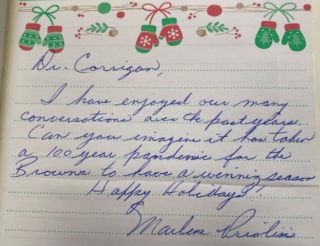 Dr. Corrigan,
I have enjoyed our many
conversations over the past years.
Can you imagine it has taken
a 100 year pandemic for the
Browns to have a winning season!
Happy Holidays!
Marlene